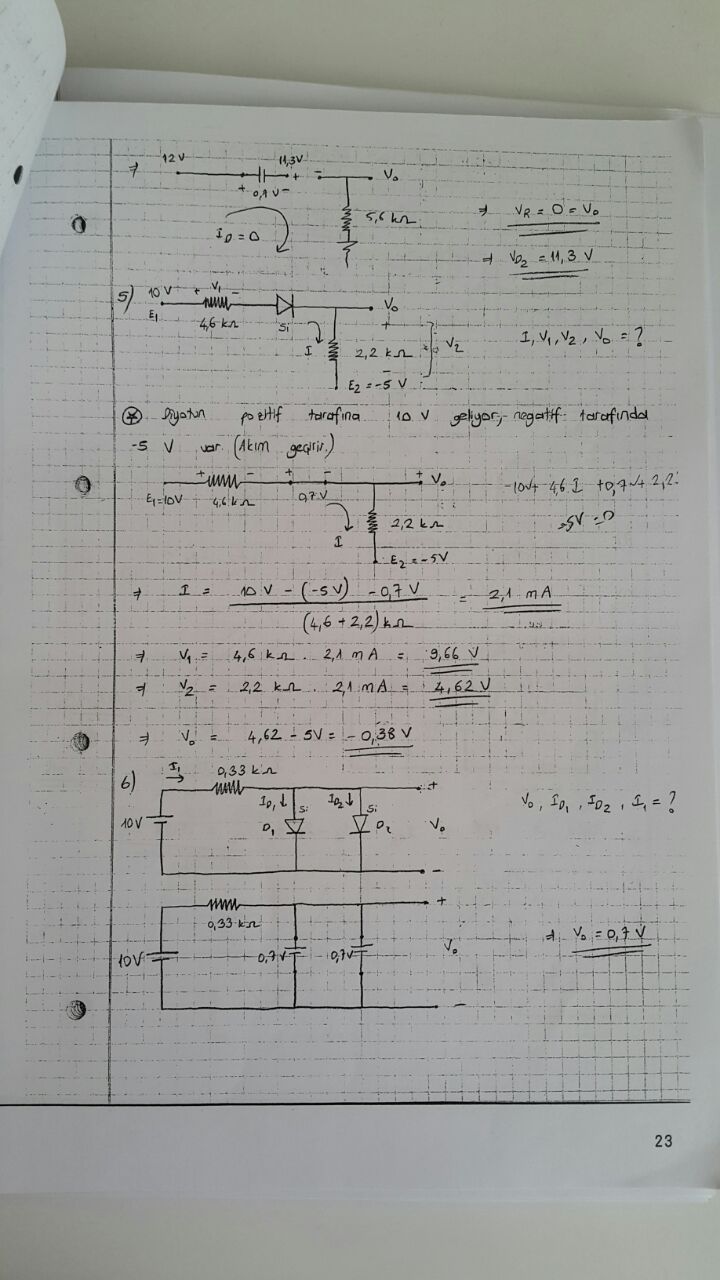 ⇒ 12V 11,3V V₀
+ 0,7V - + -
5,6 kΩ
I_D = 0
⇒ V_R = 0 = V₀
⇒ V_D2 = 11,3 V
5) 10V + V₁ - V₀
E₁ 4,6 kΩ Si
I 2,2 kΩ + - V₂
E₂ = -5 V
I, V₁, V₂, V₀ = ?
⊛ Diyotun pozitif tarafına 10 V geliyor, negatif tarafında
-5 V var. (Akım geçirir.)
+ - + - + V₀
E₁=10V 4,6 kΩ 0,7V
I 2,2 kΩ
E₂ = -5V
-10V+ 4,6 I +0,7V+ 2,2
-5V = 0
⇒ I = 10 V - (-5V) - 0,7 V / (4,6 + 2,2) kΩ = 2,1 mA
⇒ V₁ = 4,6 kΩ . 2,1 mA = 9,66 V
⇒ V₂ = 2,2 kΩ . 2,1 mA = 4,62 V
⇒ V₀ = 4,62 - 5V = -0,38 V
6) I₁ → 0,33 kΩ +
10V I_D1 ↓ Si D₁ I_D2 ↓ Si D₂ V₀
-
V₀, I_D1, I_D2, I₁ = ?
0,33 kΩ +
10V 0,7V 0,7V V₀
-
⇒ V₀ = 0,7 V
23